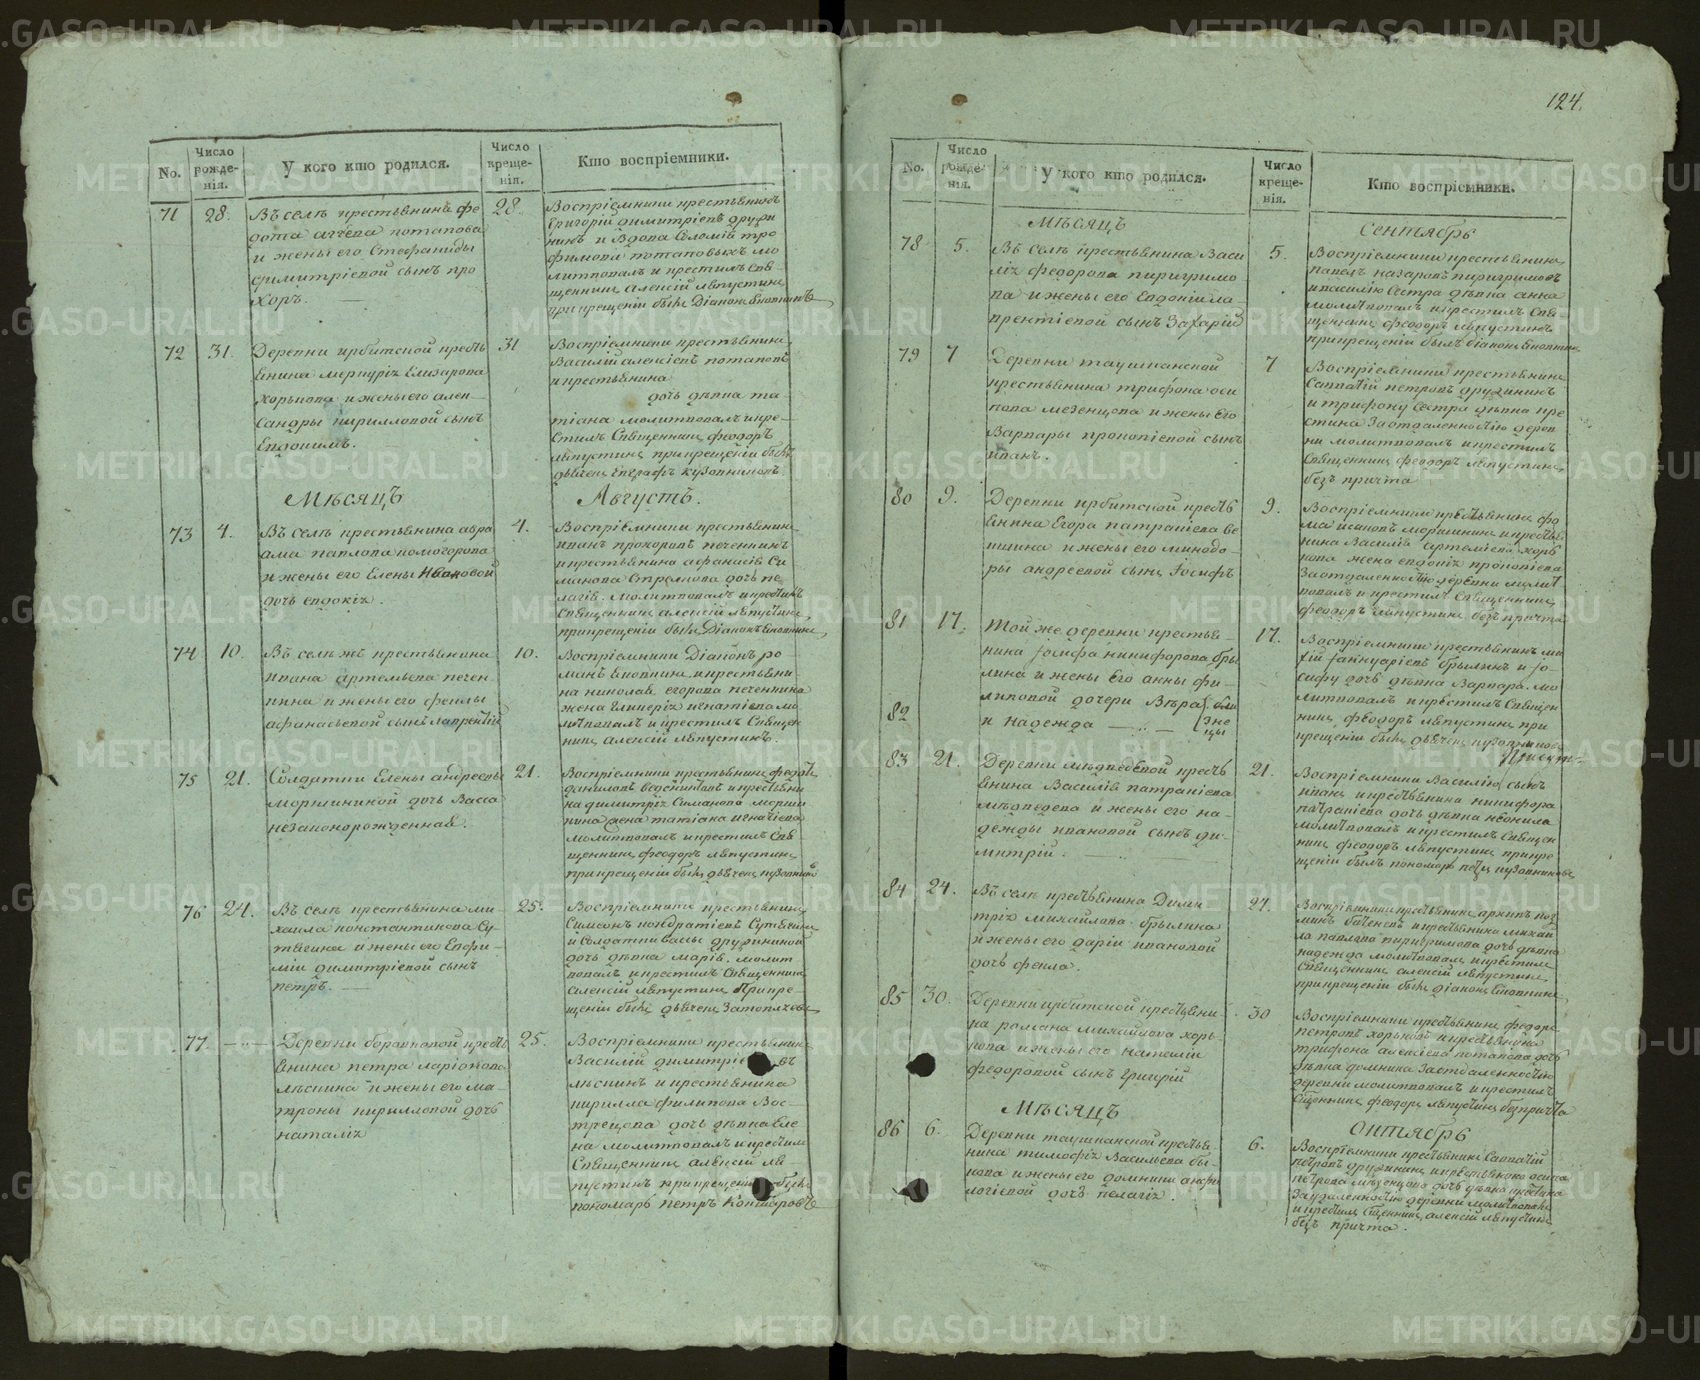 124.
No.
Число рожде-нія.
У кого кто родился.
Число креще-нія.
Кто воспріемники.
71
28.
Въ селѣ крестьянина Фе
дота
Потапова
и жены его Стефаниды
Димитріевой сынъ Про
хоръ.
28.
Воспріемники крестьянинъ
Григорій Димитріевъ Дружи
нинъ и вдова Соломія Тро
фимова Потаповыхъ мо
литвовалъ и крестилъ Свя
щенникъ Алексій Ляпустинъ
при крещеніи былъ Діаконъ
72
31.
Деревни Ирбитской кресть
янина Меркурія Елизарова
Хорькова и жены его Алек
сандры Кирилловой сынъ
Евдокимъ.
31
Воспріемники крестьянинъ
Василій Алексіевъ Потаповъ
и крестьянина
дочь дѣвка Та
тіана молитвовалъ и кре
стилъ Священникъ Феодоръ
Ляпустинъ при крещеніи былъ
дьячекъ Евграфъ Кузовниковъ.
Мѣсяцъ
Августъ.
73
4.
Въ селѣ крестьянина Авра
ама Павлова Комогорова
и жены его Елены Ивановой
дочь Евдокія.
4.
Воспріемники крестьянинъ
Иванъ Прохоровъ Печенкинъ
и крестьянина Афанасія Си
манова
дочь Пе
лагія. Молитвовалъ и крестилъ
Священникъ Алексій Ляпустинъ,
при крещеніи былъ Діаконъ
74
10.
Въ селѣ жъ крестьянина
Ивана Артемьева Печен
кина и жены его Феклы
Афанасьевой сынъ Лаврентій
10.
Воспріемники Діаконъ Ро
манъ
и крестьяни
на Николая Егорова Печенкина
жена Гликерія Игнатіева мо
литвовалъ и крестилъ Священ
никъ Алексій Ляпустинъ.
75
21.
Солдатки Елены Андреевы
Моршининой дочь Васса
незаконорожденная.
21.
Воспріемники крестьянинъ Федотъ
Даниловъ
и крестьяни
на Димитрія Симанова Морши
нина жена Татіана Игнатіева
молитвовалъ и крестилъ Свя
щенникъ Феодоръ Ляпустинъ,
при крещеніи былъ дьячекъ Кузовниковъ
76
24.
Въ селѣ крестьянина Ми
хаила Константинова Су
тягина и жены его Евфи
міи Димитріевой сынъ
Петръ.
25.
Воспріемники крестьянинъ
Симеонъ Кондратіевъ Сутягинъ
и Солдатки Вассы Дружининой
дочь дѣвка Марія. Молит
вовалъ и крестилъ Священникъ
Алексій Ляпустинъ При кре
щеніи былъ дьячекъ
77
Деревни Боровиковой кресть
янина Петра Ларіонова
Лѣскина и жены его Ма
троны Кирилловой дочь
Наталія
25.
Воспріемники крестьянинъ
Василій Димитріевъ
Лѣскинъ и крестьянина
Кирилла Филипова Вос
трецова дочь дѣвка Еле
на молитвовалъ и крестилъ
Священникъ Алексій Ля
пустинъ при крещеніи былъ
пономарь Петръ
No.
Число рожде-нія.
У кого кто родился.
Число креще-нія.
Кто воспріемники.
Мѣсяцъ
Сентябрь
78
5.
Въ селѣ крестьянина Васи
лія Федорова Пиригримо
ва и жены его Евдокіи Ла
врентіевой сынъ Захарій
5.
Воспріемники крестьянинъ
Павелъ Назаровъ Пиригримовъ
и Василію Сестра дѣвка Анна
молитвовалъ и крестилъ Свя
щенникъ Феодоръ Ляпустинъ
при крещеніи былъ Діаконъ
79
7
Деревни Таушканской
крестьянина Трифона Оси
пова Мезенцова и жены его
Варвары Прокопіевой сынъ
Иванъ.
7
Воспріемники крестьянинъ
Савватій Петровъ Дружининъ
и Трифону Сестра дѣвка Кре
стина За отдаленностію дерев
ни молитвовалъ и крестилъ
Священникъ Феодоръ Ляпустинъ,
безъ причта
80
9.
Деревни Ирбитской кресть
янина Егора Патракіева Ве
и жены его Минодо
ры Андреевой сынъ Іосифъ
9.
Воспріемники крестьянинъ Фо
ма Исаковъ
и кресть
янина Василія Артеміева Хорь
кова жена Евдокія Прокопіева
За отдаленностію деревни молит
вовалъ и крестилъ Священникъ
Феодоръ Ляпустинъ безъ причта
81
17.
Той же деревни крестья
нина Іосифа Никифорова Бры
лина и жены его Анны Фи
липовой дочери Вѣра
82
и Надежда
близнецы
17.
Воспріемники крестьянинъ Ма
Іаннуаріевъ Брылинъ и Іо
сифу дочь дѣвка Варвара. Мо
литвовалъ и крестилъ Священ
никъ Феодоръ Ляпустинъ при
крещеніи былъ дьячекъ Кузовниковъ
83
21.
Деревни Медведевой кресть
янина Василія Патракіева
Медведева и жены его На
дежды Ивановой сынъ Ди
митрій.
21.
Воспріемники Василію сынъ
Иванъ и крестьянина Никифора
Патракіева дочь дѣвка Неонила
молитвовалъ и крестилъ Священ
никъ Феодоръ Ляпустинъ при кре
щеніи былъ пономарь Петръ Кузовниковъ
84
24.
Въ селѣ крестьянина Дими
трія Михайлова Брылина
и жены его Даріи Ивановой
дочь Фекла.
27.
Воспріемники крестьянинъ Архипъ Коз
минъ
и крестьянина Михаи
ла Павлова Пиригримова дочь дѣвка
Надежда молитвовалъ и крестилъ
Священникъ Алексій Ляпустинъ
при крещеніи былъ Діаконъ
85
30.
Деревни Ирбитской крестьяни
на Романа Михайлова Хорь
кова и жены его Наталіи
Федоровой сынъ Григорій
30
Воспріемники крестьянинъ Федоръ
Петровъ Хорьковъ и крестьянина
Трифона Алексіева Потапова дочь
дѣвка Домника За отдаленностію
деревни молитвовалъ и крестилъ
Священникъ Феодоръ Ляпустинъ безъ причта
Мѣсяцъ
Октябрь
86
6.
Деревни Таушканской крестья
нина Тимофія Васильева Бы
кова и жены его Домники Амфи
логіевой дочь Пелагія.
6.
Воспріемники крестьянинъ Савватій
Петровъ Дружининъ и крестьянина Осипа
Петрова Мезенцова дочь дѣвка Крестина
За удаленностію деревни молитвовалъ
и крестилъ Священникъ Алексій Ляпустинъ
безъ причта.
METRIKI.GASO-URAL.RU